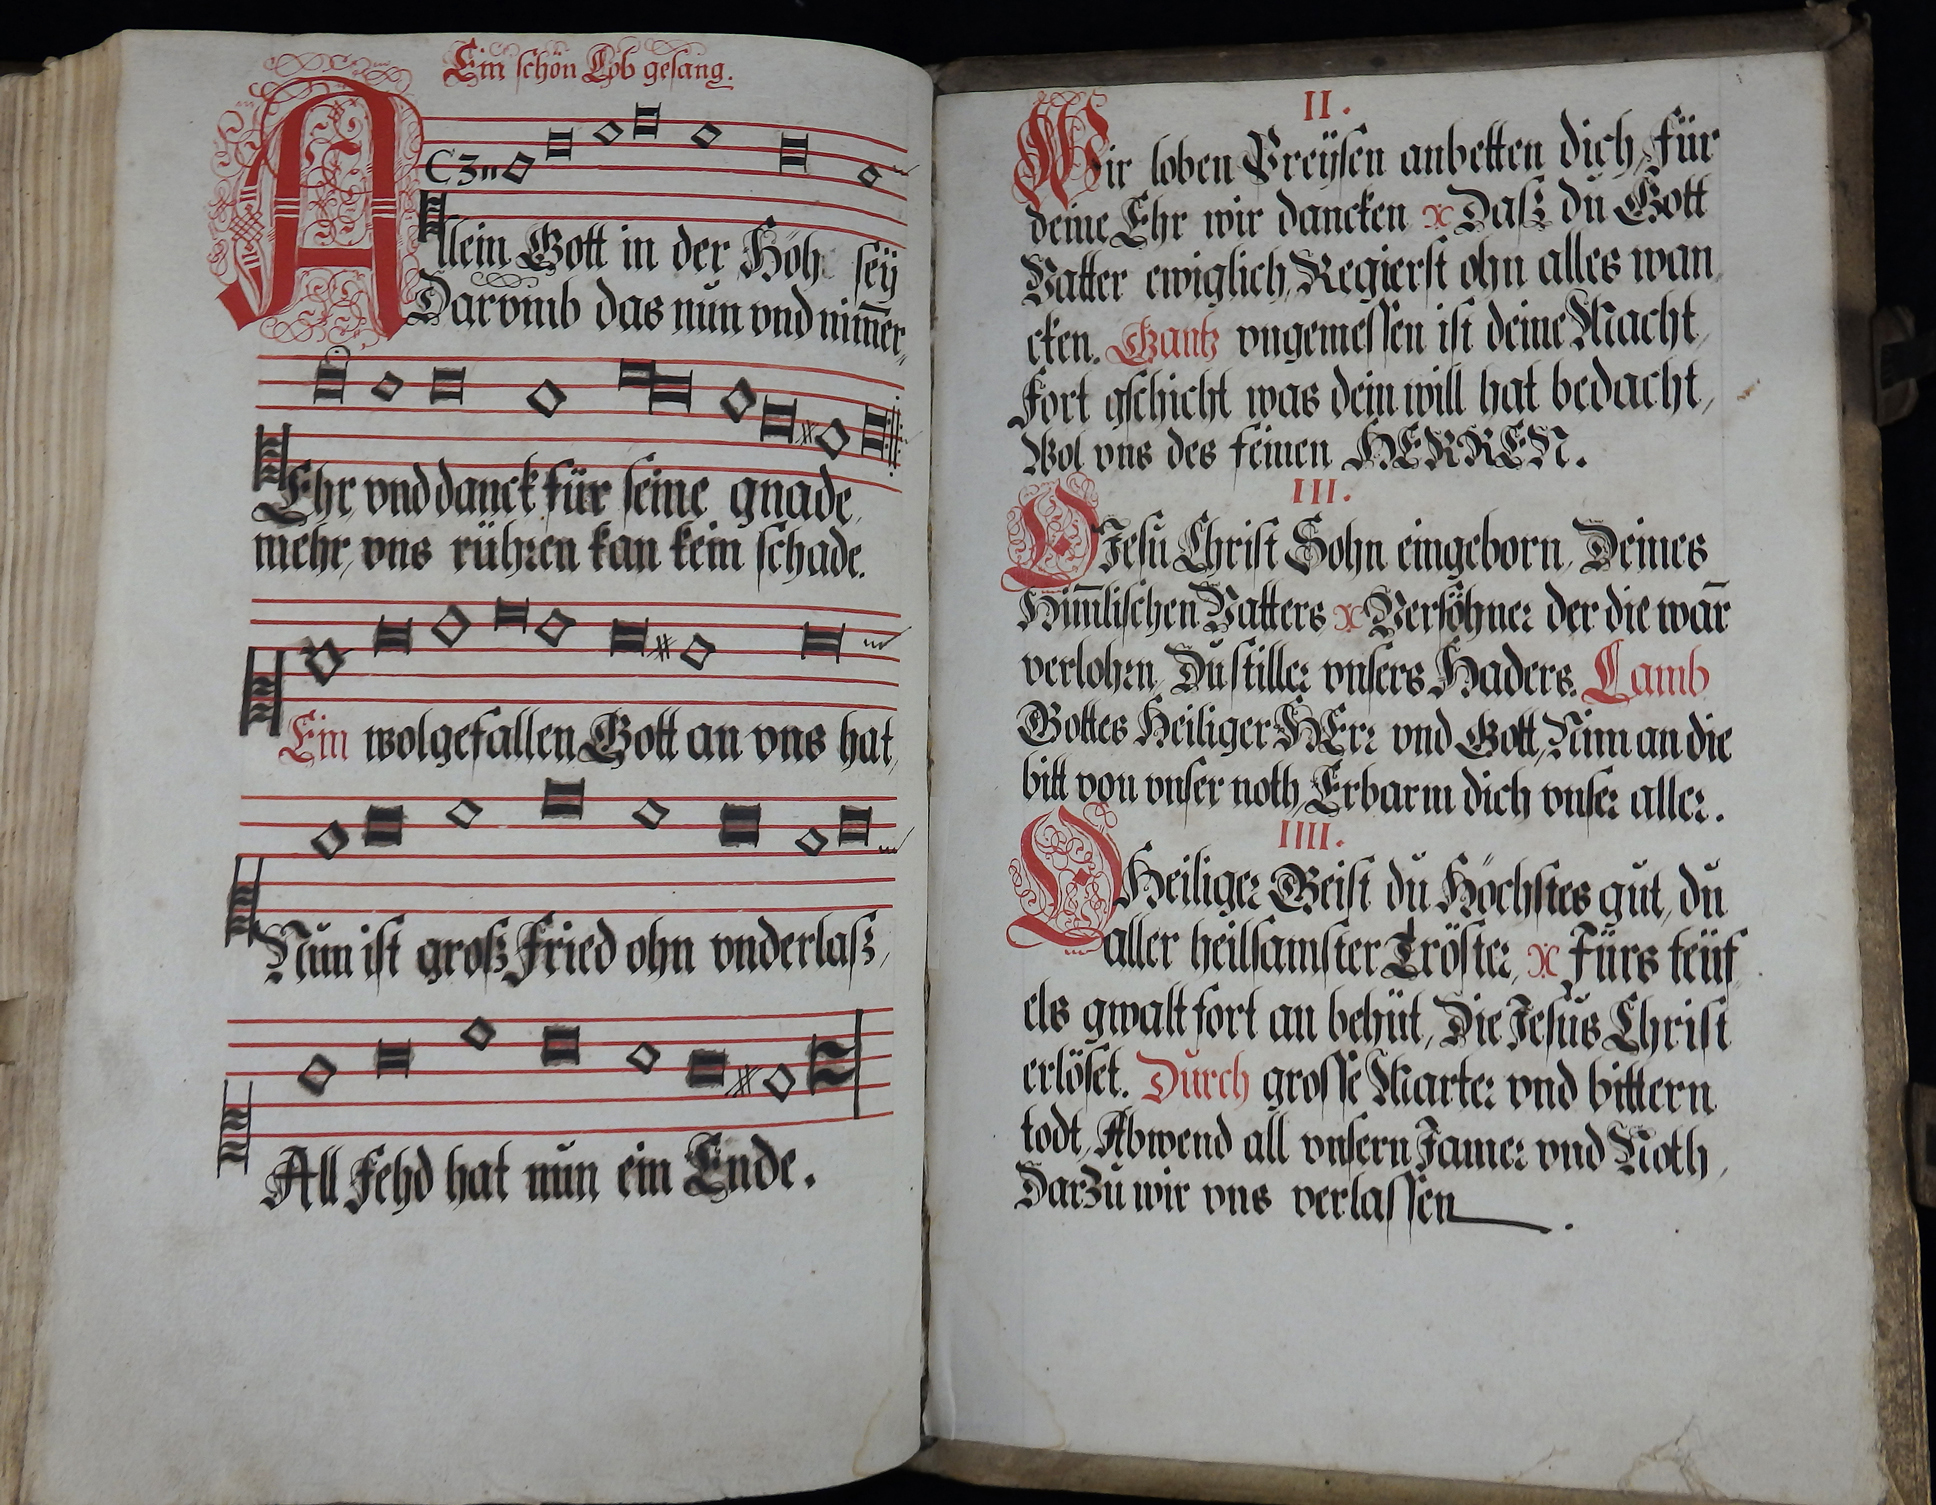 Ein schön Lob gesang.
Allein Gott in der Höh sey
Darvmb das nun vnd nim̄er,
Ehr, vnd danck für seine gnade,
mehr, vns rühren kan kein schade.
Ein wolgefallen Gott an vns hat,
Nun ist groß Fried ohn vnderlaß,
All Fehd hat nun ein Ende.
II.
Wir loben Preÿsen anbetten dich, für
deine Ehr wir dancken Daß du Gott
Vatter ewiglich, Regierst ohn alles wan
cken. Gantz vngemessen ist deine Macht,
Fort gschicht was dein will hat bedacht,
Wol vns des feinen HERREN.
III.
O Jesu Christ Sohn eingeborn, Deines
Him̄lischen Vatters Versöhner der die war̄
verlohrn, Du stiller vnsers Haders. Lamb
Gottes Heiliger HErr vnd Gott, Nim an die
bitt von vnser noth, Erbarm dich vnser aller.
IIII.
O Heiliger Geist du Höchstes gut, du
aller heilsamster Tröster, Fürs teüf
els gwalt fort an behüt, Die Jesus Christ
erlöset. Durch grosse Marter vnd bittern
todt, Abwend all vnsern Jamer vnd Noth,
Darzu wir vns verlassen.